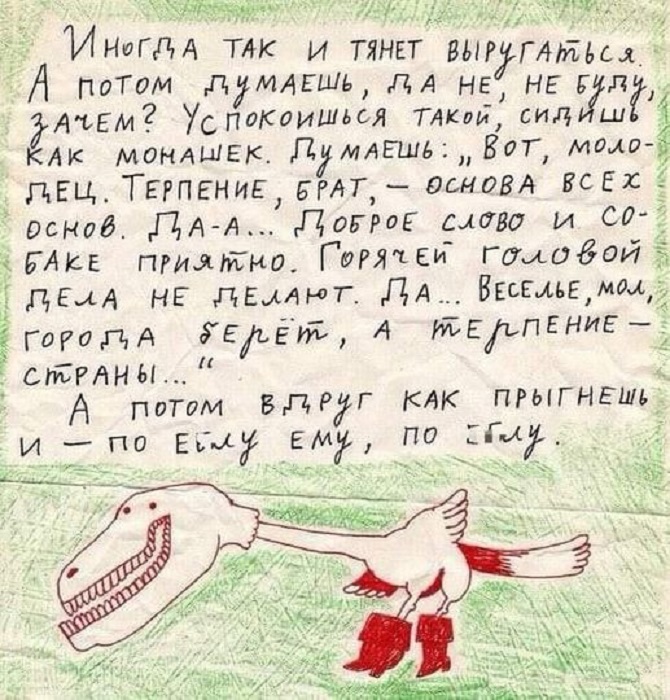 Иногда так и тянет выругаться.
А потом думаешь, да не, не буду,
зачем? Успокоишься такой, сидишь
как монашек. Думаешь: „Вот, моло-
дец. Терпение, брат, – основа всех
основ. Да-а... Доброе слово и со-
баке приятно. Горячей головой
дела не делают. Да... Веселье, мол,
города берёт, а терпение –
страны...“
А потом вдруг как прыгнешь
и – по ему, по